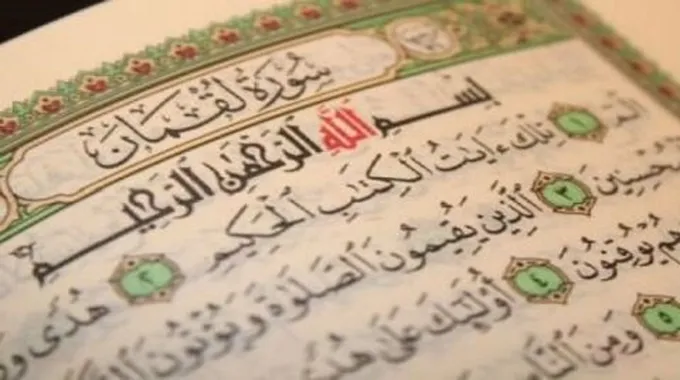 سُورَةُ لُقْمَانَ
بِسْمِ ٱللَّهِ ٱلرَّحْمَٰنِ ٱلرَّحِيمِ
الٓمٓ ١ تِلْكَ ءَايَٰتُ ٱلْكِتَٰبِ ٱلْحَكِيمِ ٢ هُدًى
٣ ٱلَّذِينَ يُقِيمُونَ ٱلصَّلَوٰةَ وَيُؤْتُونَ
هُمْ يُوقِنُونَ ٤ أُوْلَٰٓئِكَ عَلَىٰ هُدًى
٥ وَمِنَ ٱلنَّاسِ